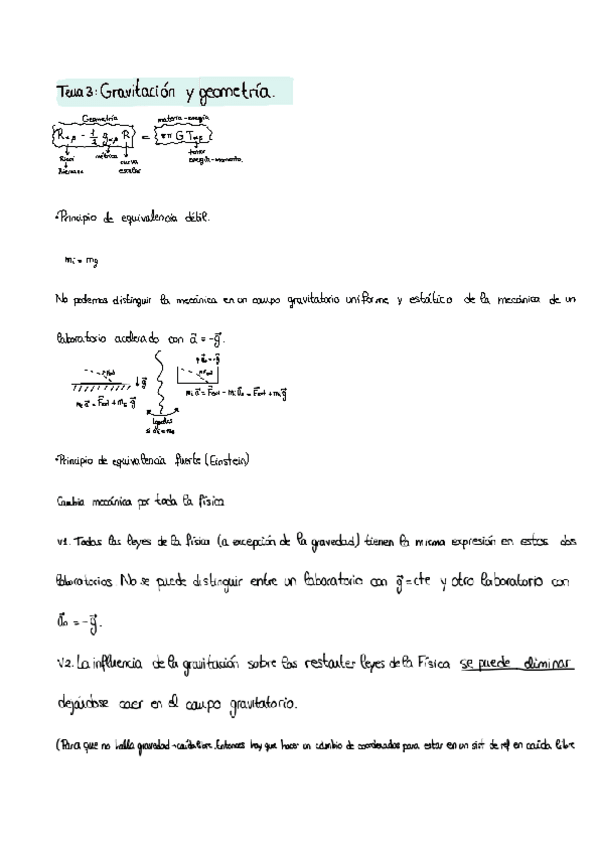 Tema 3: Gravitación y geometría.
Geometría materia-energía
Rαβ - 1/2 gαβ R = 8π G Tαβ
Ricci métrica curva escalar tensor energía-momento.
Riemann
•Principio de equivalencia débil.
mi = mg
No podemos distinguir la mecánica en un campo gravitatorio uniforme y estático de la mecánica de un
laboratorio acelerado con a⃗ = -g⃗.
↑ a⃗₀ = -g⃗
↓ g⃗
mi a⃗ = F⃗ext + mg g⃗
mi a⃗ = F⃗ext - mi a⃗₀ = F⃗ext + mi g⃗
iguales
si mi = mg
•Principio de equivalencia fuerte (Einstein)
Cambia mecánica por toda la física
V1. Todas las leyes de la física (a excepción de la gravedad) tienen la misma expresión en estos dos
laboratorios. No se puede distinguir entre un laboratorio con g⃗ = cte y otro laboratorio con
a⃗₀ = -g⃗.
V2. La influencia de la gravitación sobre las restantes leyes de la Física se puede eliminar
dejándose caer en el campo gravitatorio.
(Para que no halla gravedad → caída libre. Entonces hay que hacer un cambio de coordenadas para estar en un sist de ref en caída libre